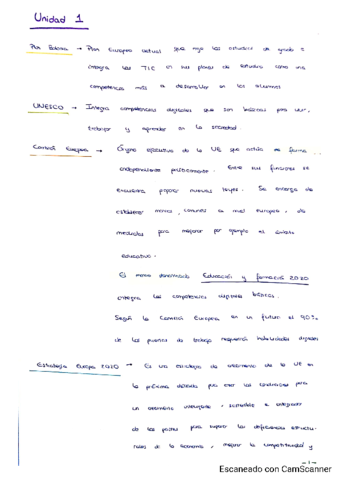 Unidad 1
Plan Bolonia → Plan Europeo actual que rige los estudios de grado e
integra las TIC en sus planes de estudio como una
competencia más a desarrollar en los alumnos
UNESCO → Integra competencias digitales que son básicas para vivir,
trabajar y aprender en la sociedad.
Comisión Europea → Órgano ejecutivo de la UE que actúa de forma
independiente políticamente. Entre sus funciones se
encuentra proponer nuevas leyes. Se encarga de
establecer marcos comunes a nivel europeo, da
medidas para mejorar por ejemplo el ámbito
educativo.
El marco denominado Educación y formación 2020
integra las competencias digitales básicas.
Según la Comisión Europea en un futuro el 90%
de los puestos de trabajo requerirá habilidades digitales
Estrategia Europa 2020 → Es una estrategia de crecimiento de la UE en
la próxima década para crear las condiciones para
un crecimiento inteligente, sostenible e integrador
de los países para superar las deficiencias estructu-
rales de la economía, mejorar la competitividad y
Escaneado con CamScanner